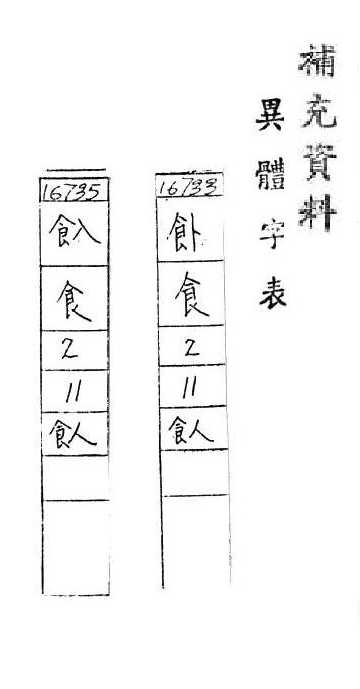 補充資料
異體字表
16733
飠卜
食
2
11
飤
16735
飠入
食
2
11
飤